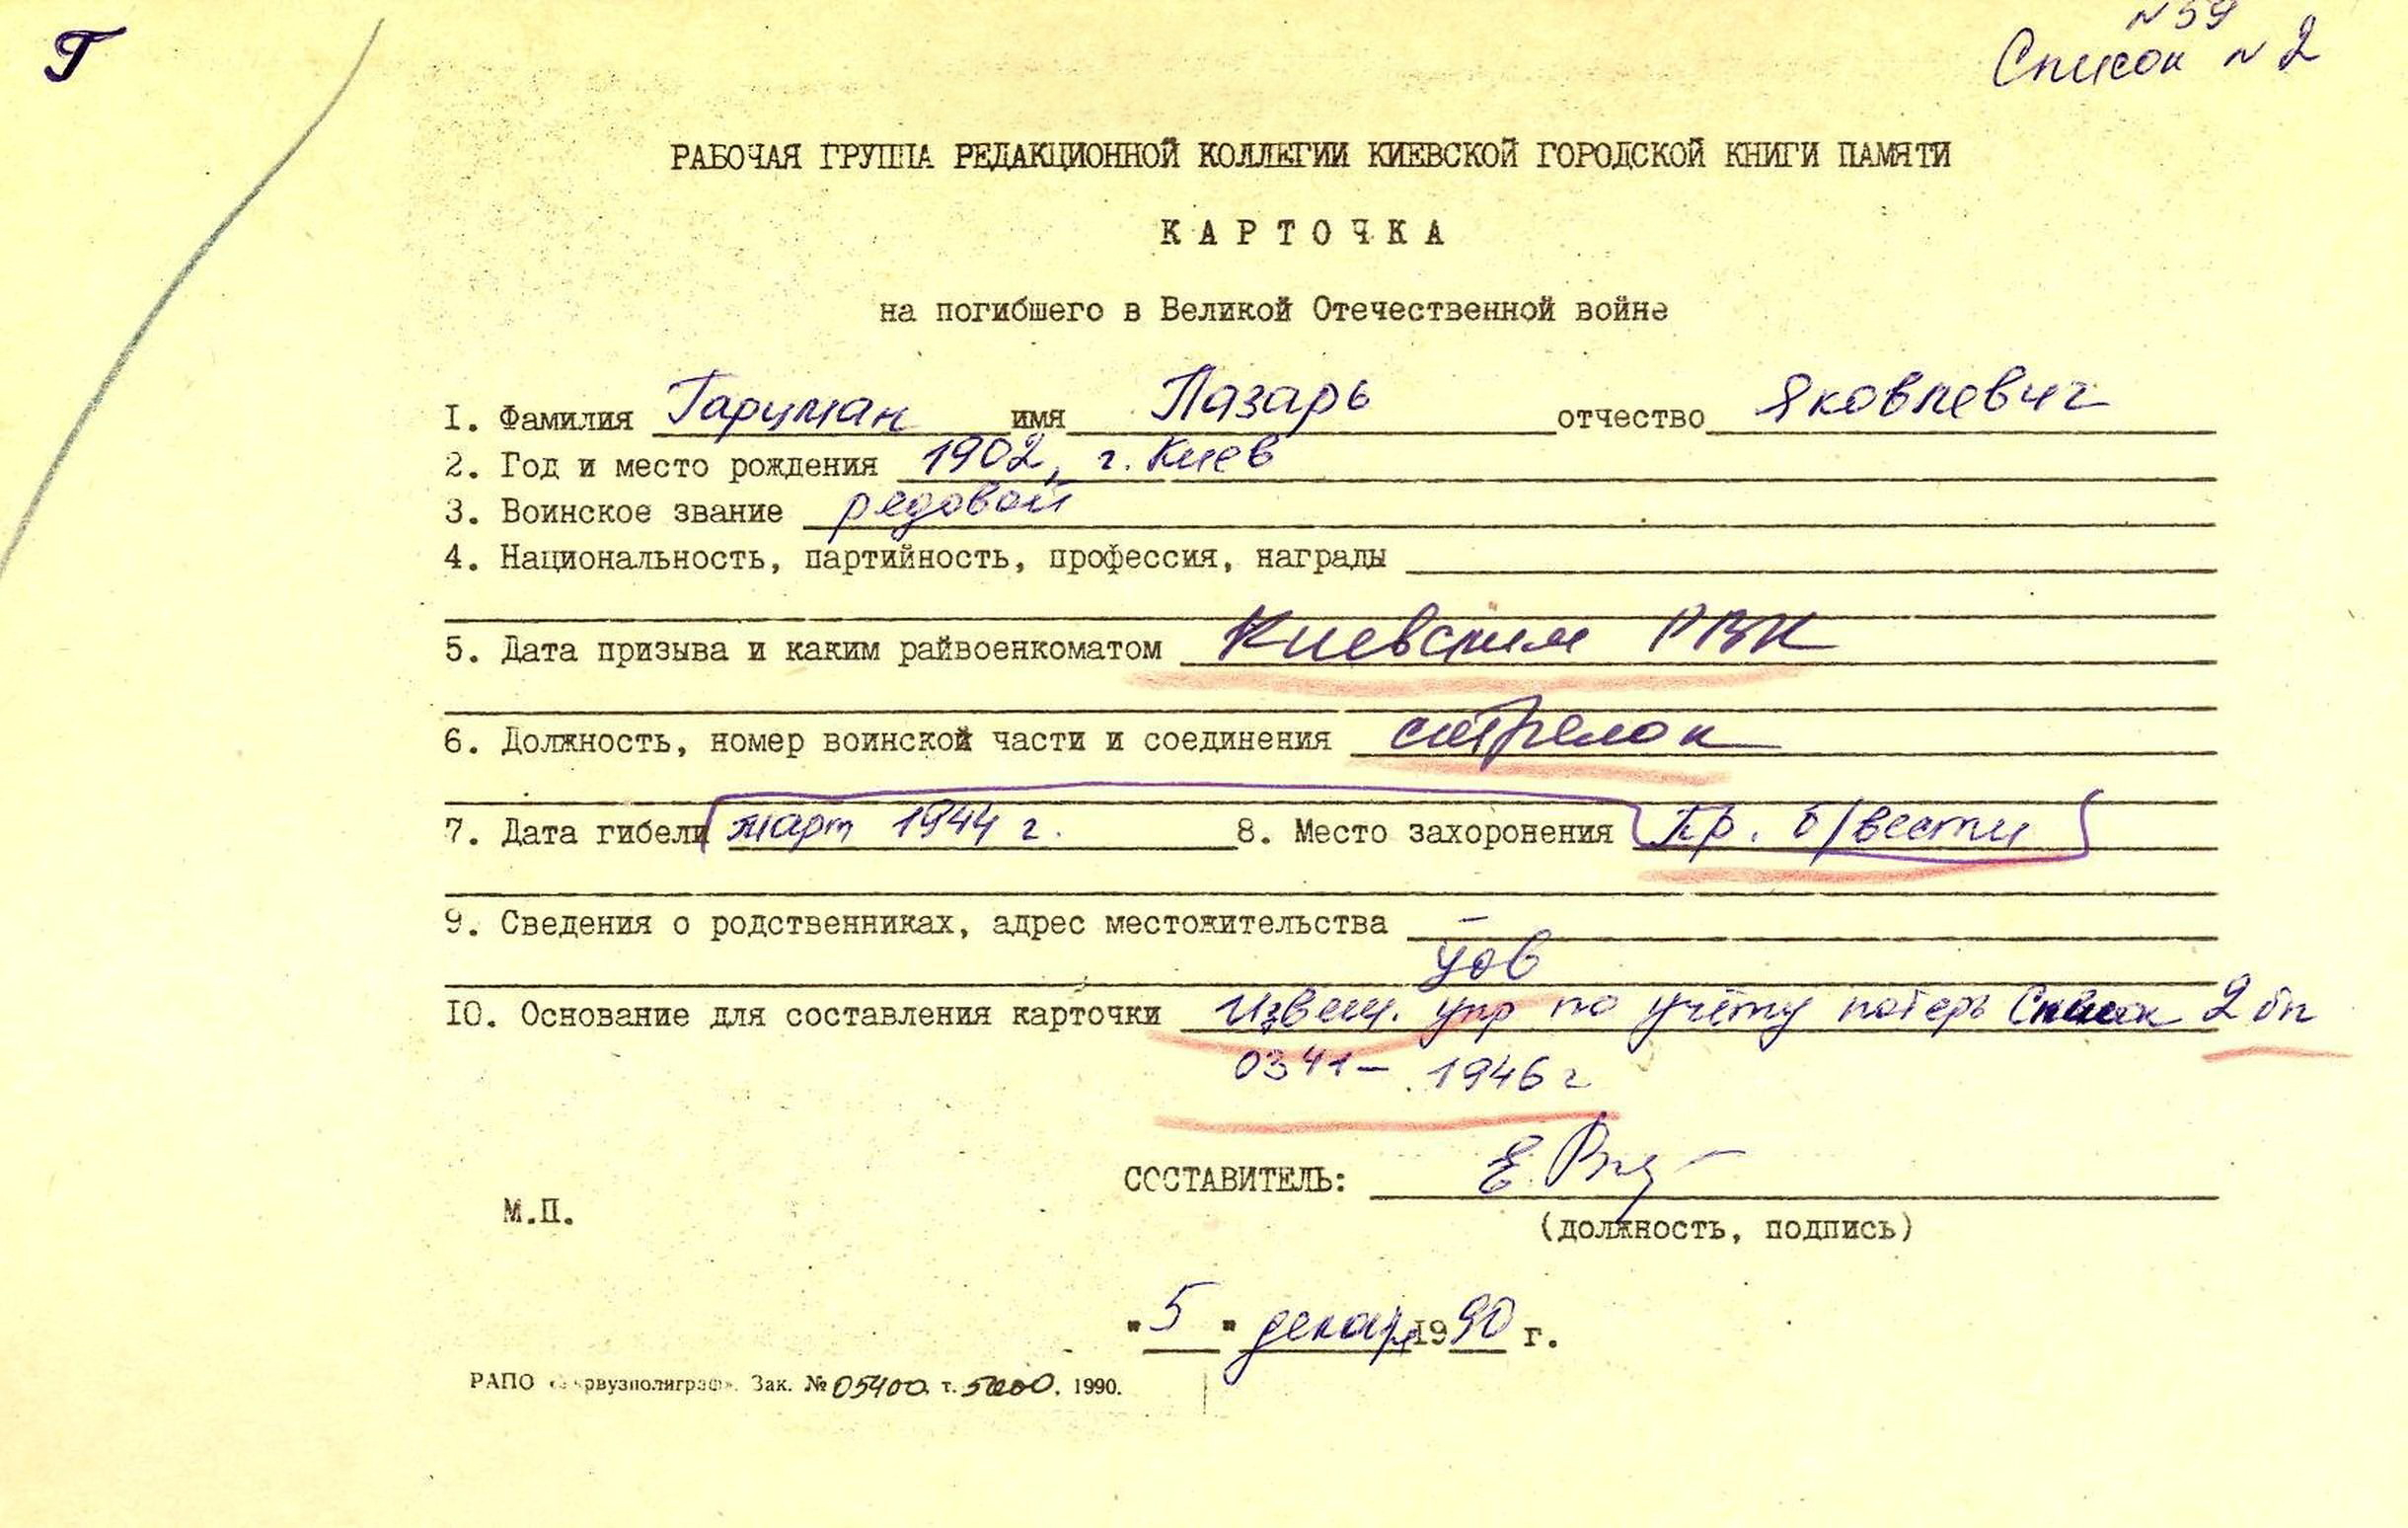 Г
N 59
Список N 2
РАБОЧАЯ ГРУППА РЕДАКЦИОННОЙ КОЛЛЕГИИ КИЕВСКОЙ ГОРОДСКОЙ КНИГИ ПАМЯТИ
КАРТОЧКА
на погибшего в Великой Отечественной войне
I. Фамилия Гарцман имя Лазарь отчество Яковлевич
2. Год и место рождения 1902, г. Киев
3. Воинское звание редовой
4. Национальность, партийность, профессия, награды
5. Дата призыва и каким райвоенкоматом Киевским РВК
6. Должность, номер воинской части и соединения стрелок
7. Дата гибели март 1944 г. 8. Место захоронения Пр. б/вести
9. Сведения о родственниках, адрес местожительства –
10. Основание для составления карточки Извещ. упр по учёту потерь Список 2 бп
0341– 1946 г
СОСТАВИТЕЛЬ: Е.
М.П.
(должность, подпись)
"5" декаря 1990 г.
РАПО Зак. № 05400 т. 5000. 1990.